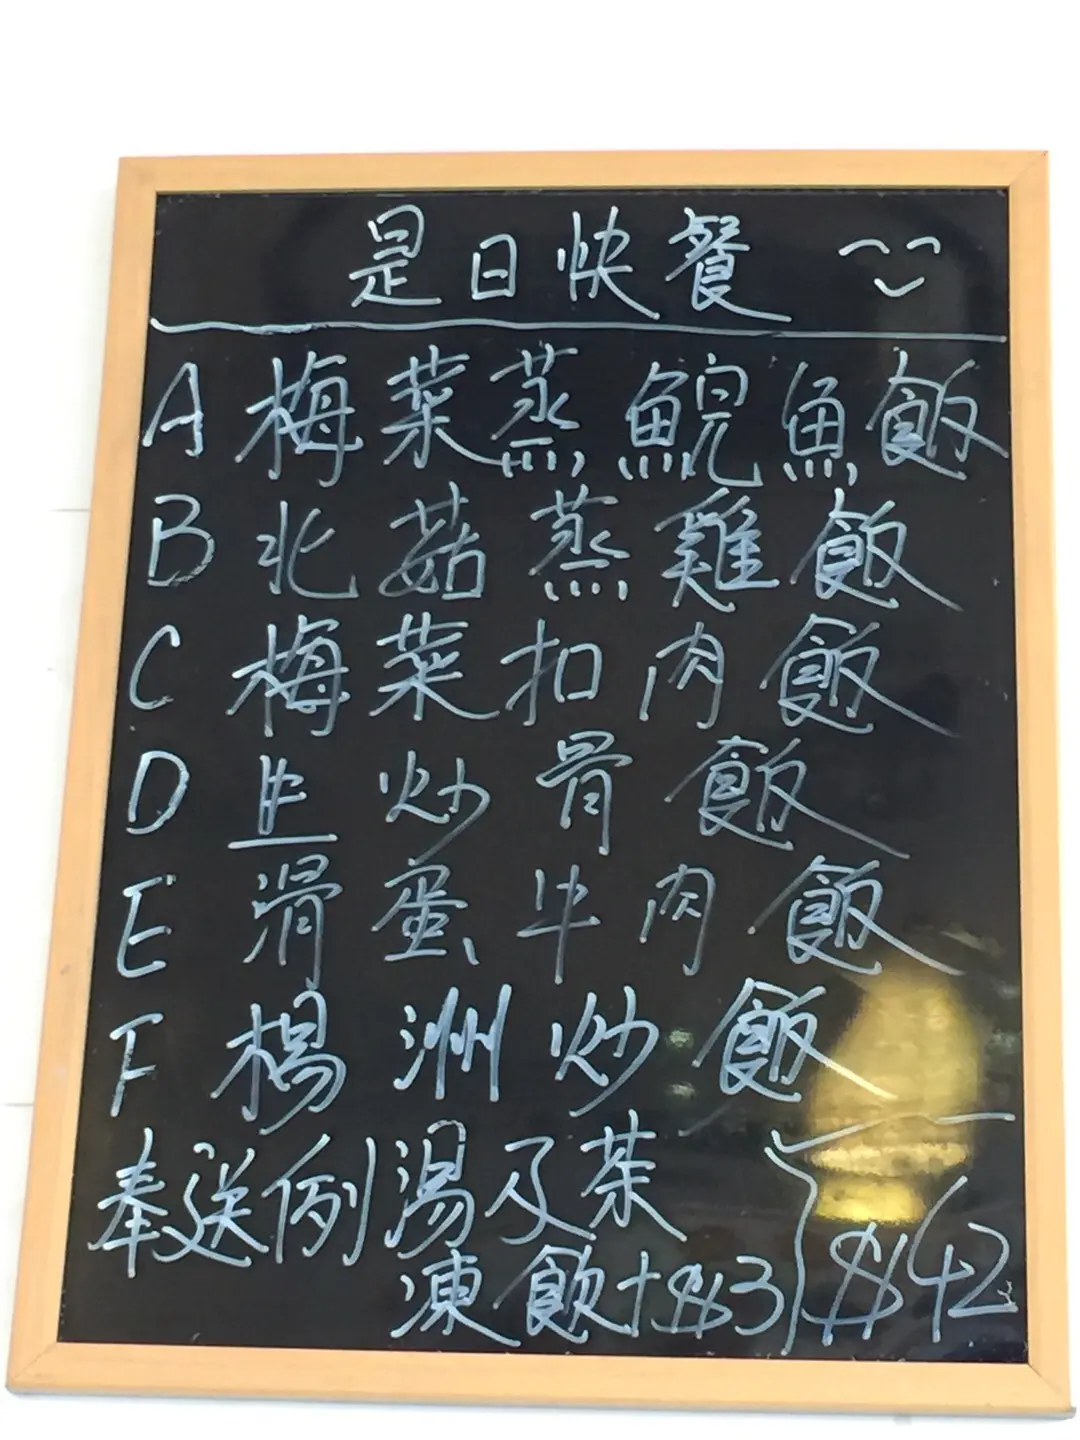 是日快餐
A 梅菜蒸鯇魚飯
B 北菇蒸雞飯
C 梅菜扣肉飯
D 生炒骨飯
E 滑蛋牛肉飯
F 楊洲炒飯
奉送例湯及茶
凍飲+$3
$42